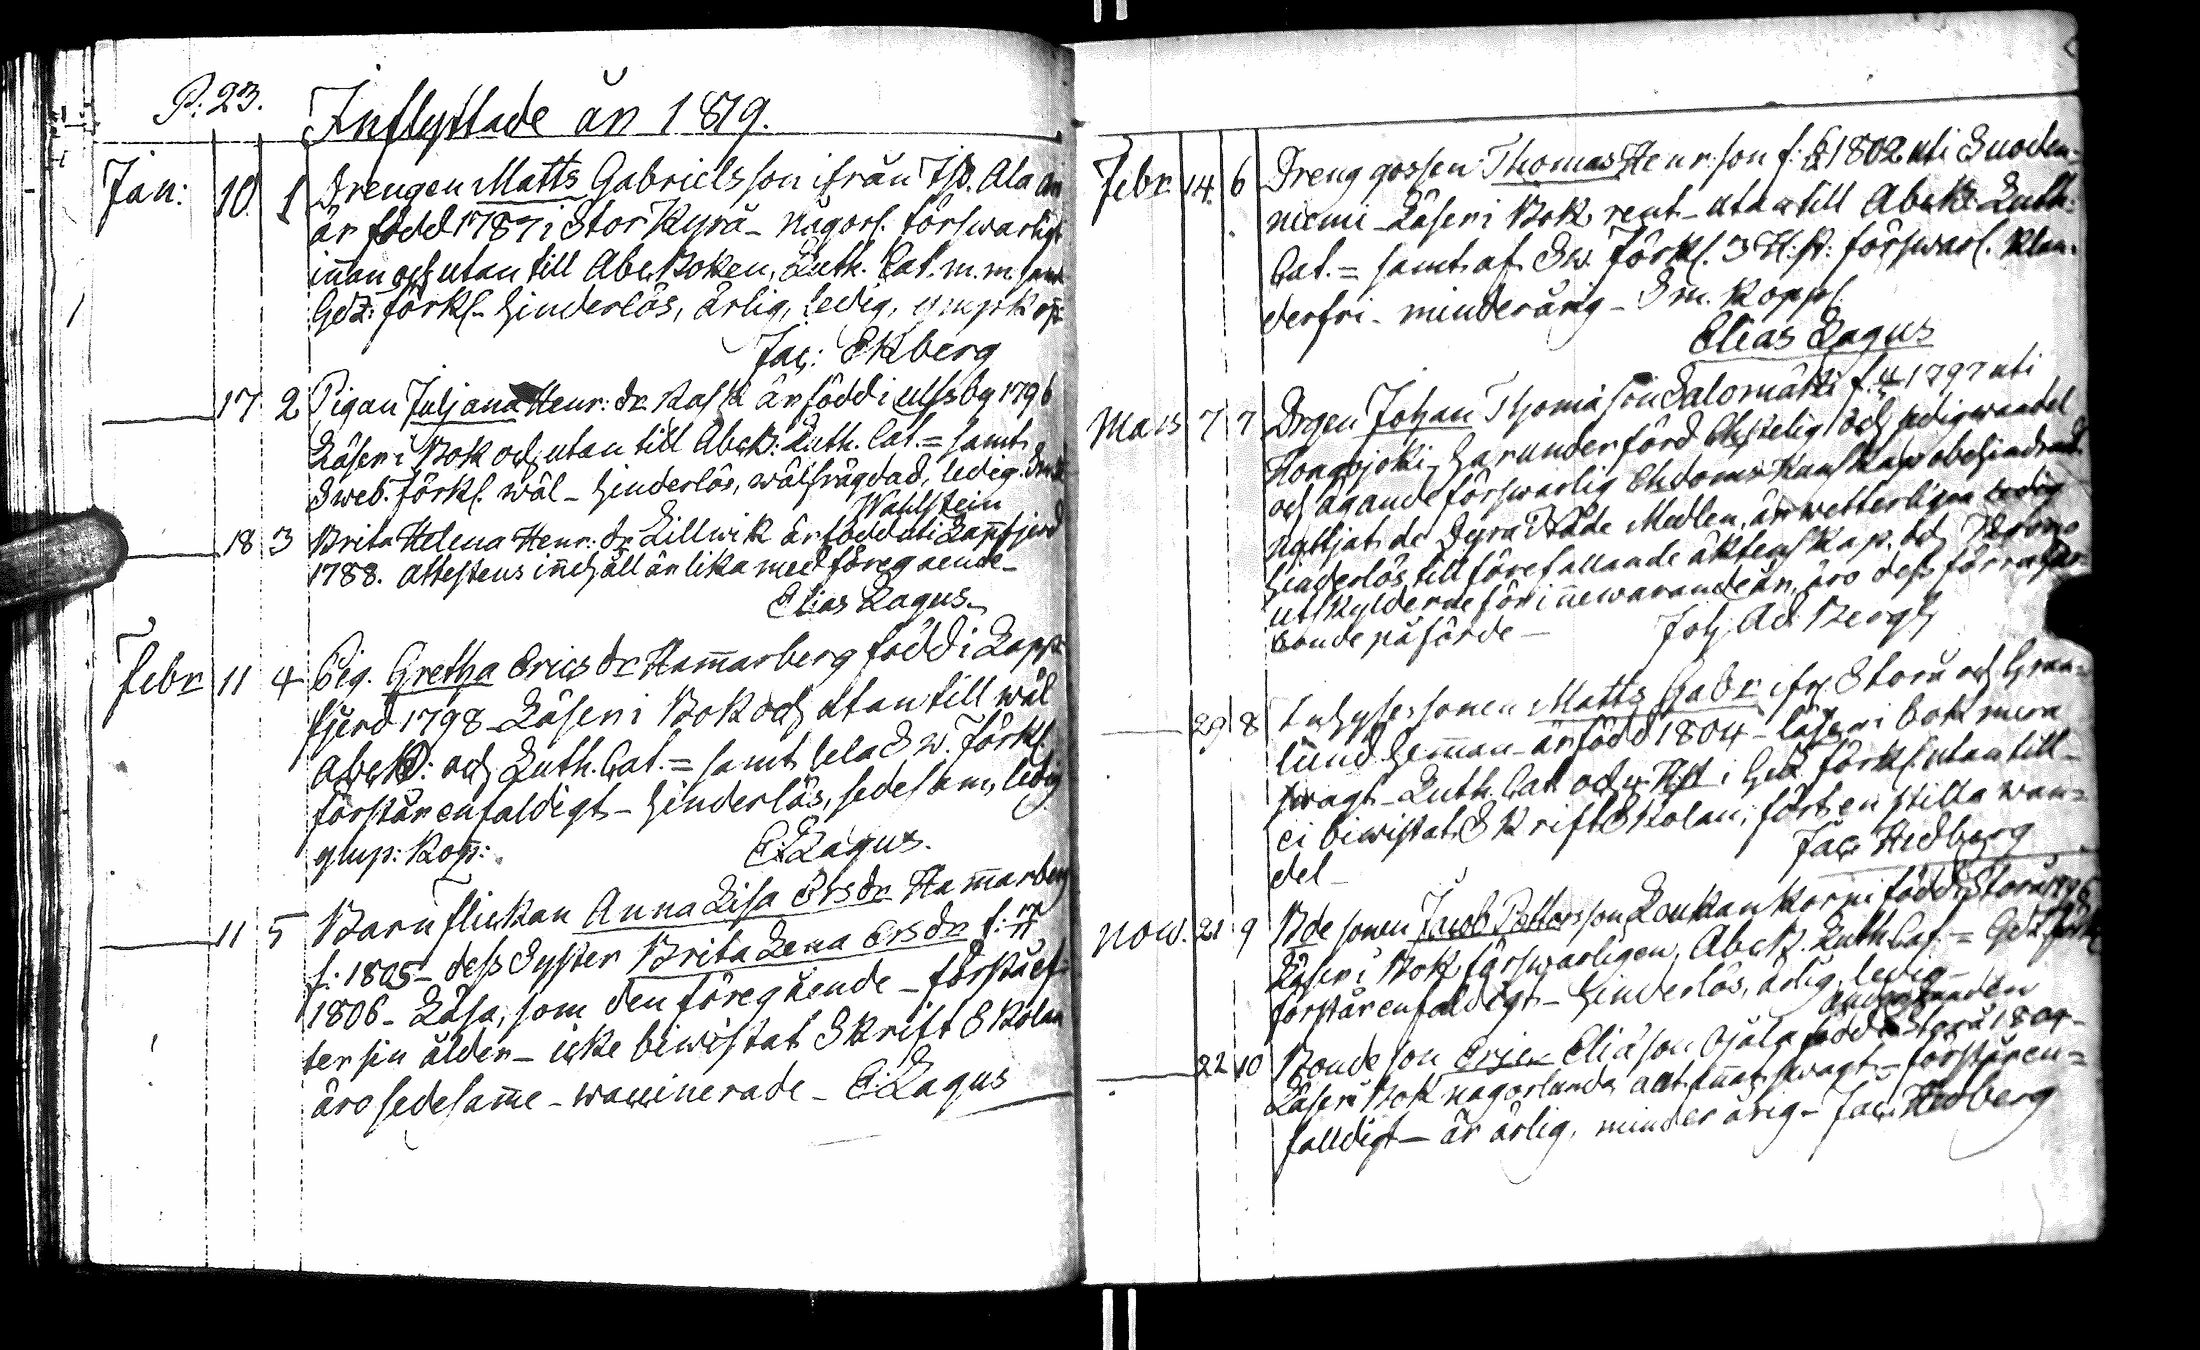 P. 23.
Inflyttade år 1819.
Jan: 10. 1 Drengen Matts Gabrielsson ifrån
är född 1787 i Storkyrå - någorl. förswarligt
innan och utan till Abc Boken, Luth. Cat. m. m. samt
Gdz: förkl. - hinderlös, ärlig, ledig,
Jac: Ekberg
17 2 Pigan Juljana Henr: dr Kask är född i Ulfsby 1796
Läser i Bok och utan till AbcB: Luth. Cat. = samt
Sweb. förkl. wäl - hinderlös, wälfrägdad, ledig.
Wahlstein
18 3 Brita Helena Henr: dr Lillwik är född uti Lappfjerd
1788. Attestens innehåll är lika med föregående -
Elias Lagus.
Febr 11 4 Pig. Gretha Erics dr Hammarberg född i Lapp-
fjerd 1798 - Läser i Bok och utan till wäl
AbcB: och Luth. Cat. = samt hela Sw. Förkl.
förstår enfaldigt - hinderlös, sedesam, ledig
ymp: Kopp:
E. Lagus.
11 5 Barnflickan Anna Lisa Ersdr Hammarberg
f. 1805 - dess Syster Brita Lena Ersdr f.
1806 - Läsa, som den föregående - förstå ef-
ter sin ålder - icke biwistat Skrift Skolan
äro sedesamme - waccinerade - E: Lagus
Febr. 14. 6 Dreng gossen Thomas Henr: son f. 1802 uti Suoden-
niemi - Läser i Bok rent - utan till AbcB. Luth:
Cat. = samt af Sw. Förkl. 3 H. st: förswarl. klan-
derfri - minderårig - Sm. Koppl.
Elias Lagus
Mars 7 7 Drgen Johan Thomasson Salomäki f. 1797 uti
Hongojoki, har underförd Christelig och sedig wandel
och ägande förswarlig Chdoms Kunskap obehindrad
nyttjat de Dyra Nåde Medlen, är wetterligen ledig
hinderlös till förefallande äktenskap. bd. Krono
utskylderne för innewarande år, äro dess förra
bonde påförde -
Joh. Ad. Bergh
29 8 Matts Gabr ifr. Storå och Gran-
lund hemman - är född 1804 - läser i bok mera
swagt - Luth. Cat. och 4. H.st i Gdz förkl. utan till -
ei biwistat Skrift Skolan; fört en stilla wan-
del -
Jac: Hedberg
Now. 21 9 Bdesonen Jacob Pettersson Loukankorpi född i Storå 1796
Läser i Bok förswarligen, AbcB. Luth. Cat. = Gdz. förkl.
förstår enfaldigt - hinderlös, ärlig, ledig -
22 10 Bonde son Erjer Eliasson Ojala född i Storå 1804 -
Läser i Bok nagorlunda allt annat swagt - förstår en-
faldigt - är ärlig, minderårig - Jac: Hedberg